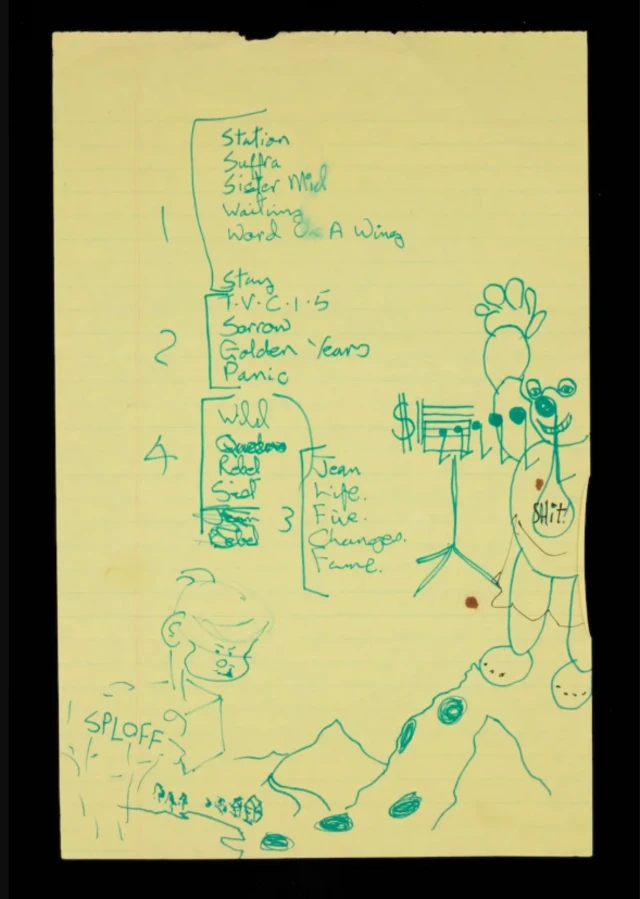 Station
Suffra
Sister Mid
Waiting
Word On A Wing
1
Stay
T.V.C.1.5
Sorrow
Golden Years
Panic
2
Wild
Queen
Rebel
4
Jean
Life.
Five.
Changes.
Fame.
3
$
SHit!
SPLOFF